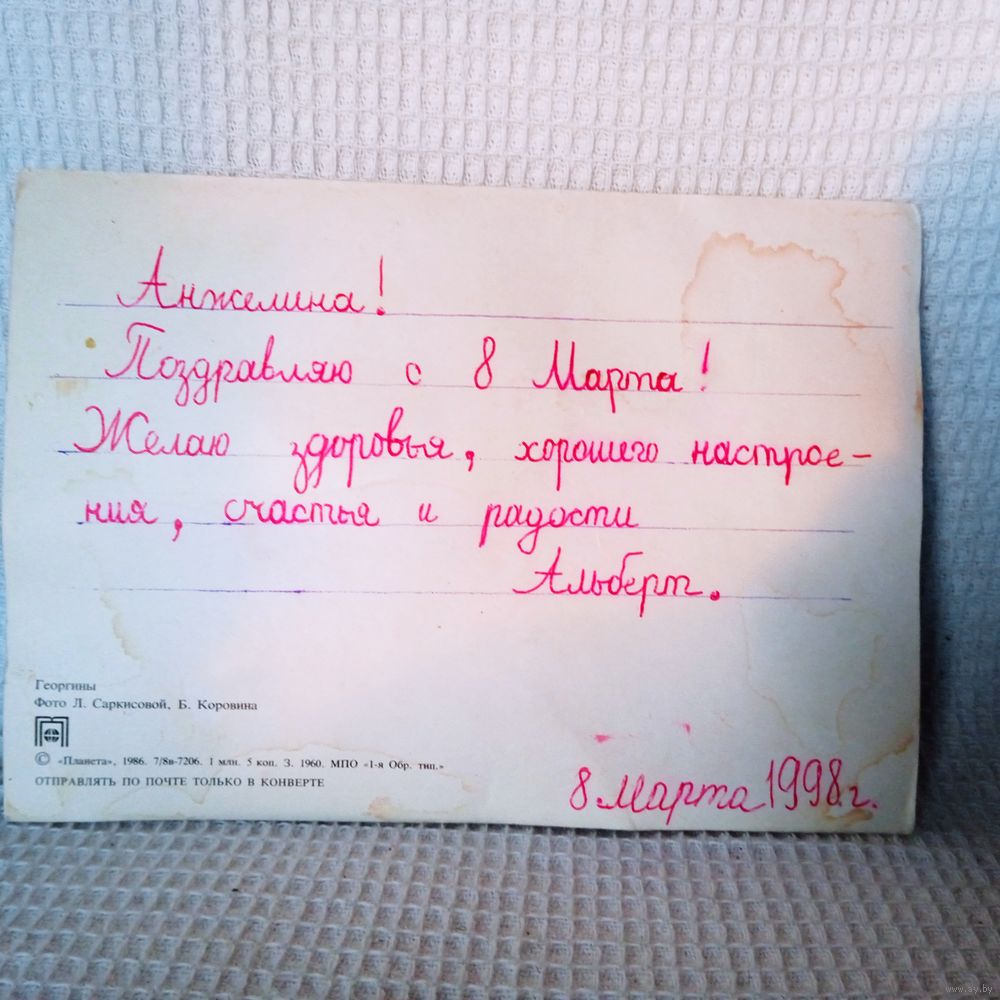 Анжелина!
Поздравляю с 8 Марта!
Желаю здоровья, хорошего настрое-
ния, счастья и радости
Альберт.
Георгины
Фото Л. Саркисовой, Б. Коровина
© «Планета», 1986. 7/8в-7206. 1 млн. 5 коп. З. 1960. МПО «1-я Обр. тип.»
ОТПРАВЛЯТЬ ПО ПОЧТЕ ТОЛЬКО В КОНВЕРТЕ
8 Марта 1998 г.
www.ay.by